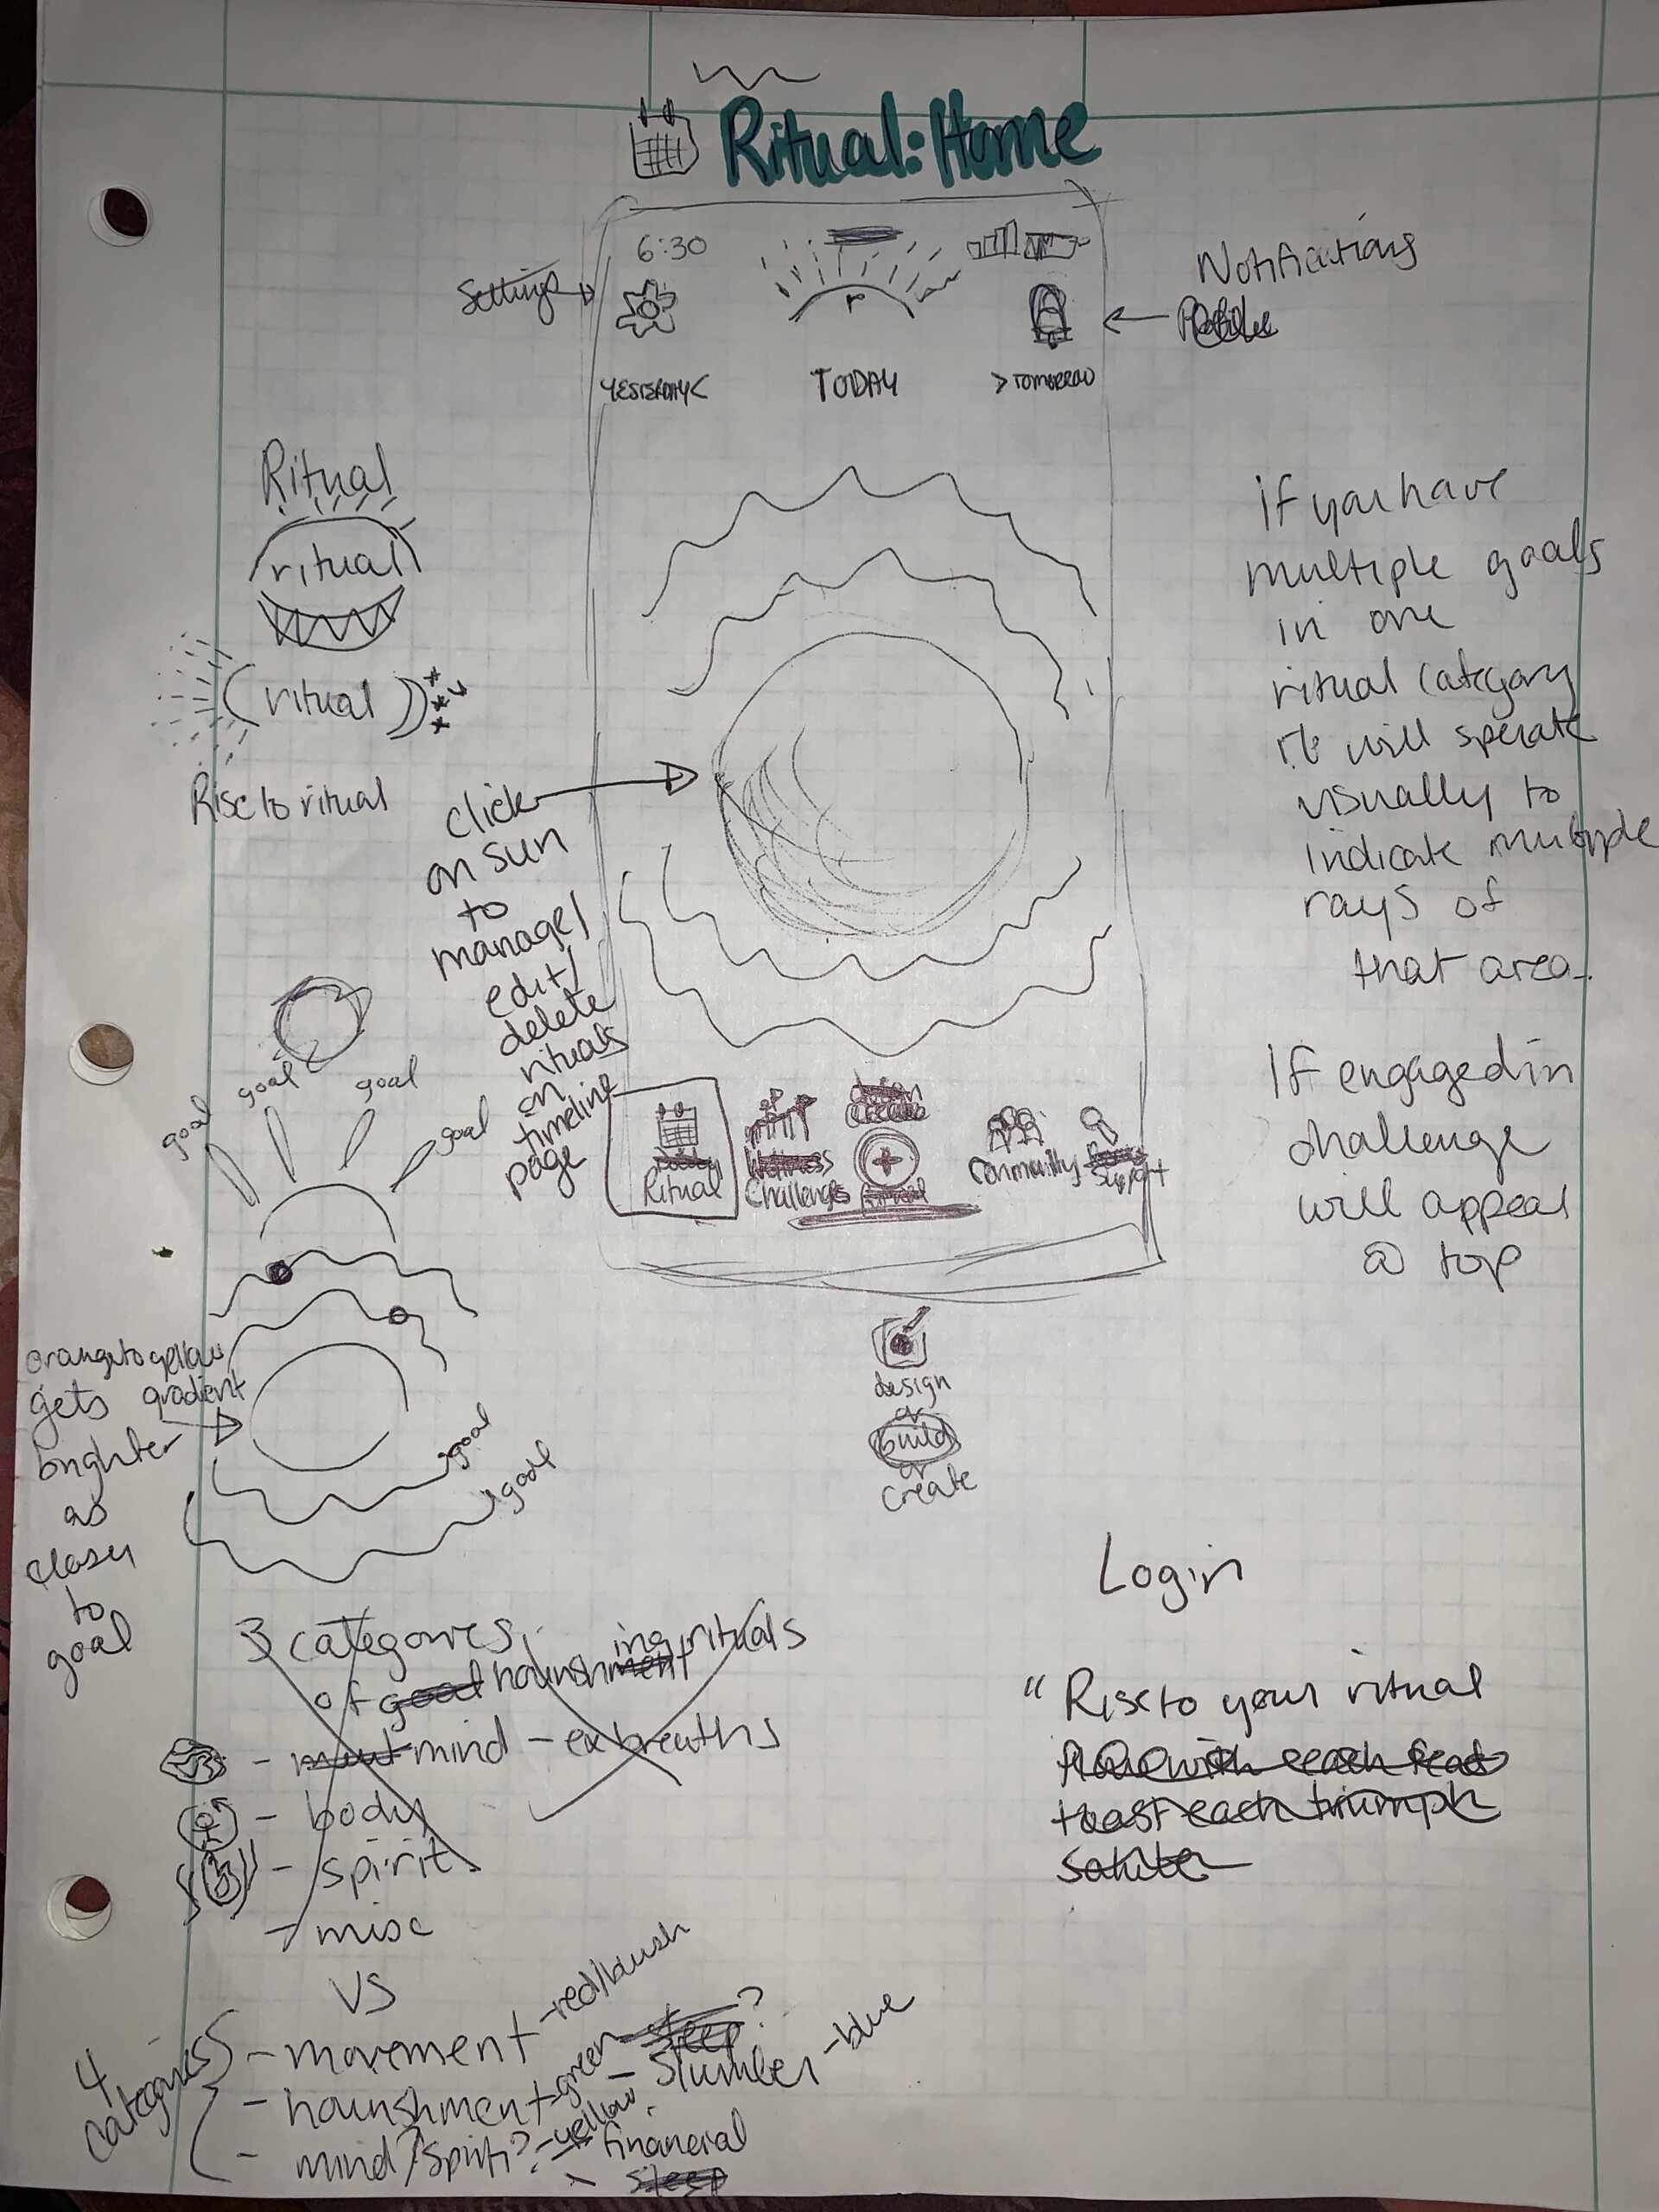 Ritual: Home
6:30
Settings
Notifications
Profile
YESTERDAY <
TODAY
> TOMORROW
r
Ritual
ritual
(ritual)
Rise to ritual
click
on sun
to
manage/
edit/
delete
rituals
on
timeline
page
If you have
multiple goals
in one
ritual category
it will sperate
visually to
indicate multiple
rays of
that area.
If engaged in
challenge
will appear
@ top
Ritual
Wellness
Challenges
design
+
Community
Support
design
or
build
or
create
goal
goal
goal
goal
orange to yellow
gets gradient
brighter
as
closer
to
goal
goal
goal
3 categories
of good nourishmenting rituals
- ment mind - ex breaths
- body
- spirit
- misc
VS
4 categories
- movement - red/blush
- nourishment - green
- mind?/spirit? - yellow
sleep?
- Slumber - blue
- financial
sleep
Login
"Rise to your ritual
flow with each feat
toast each triumph
salute